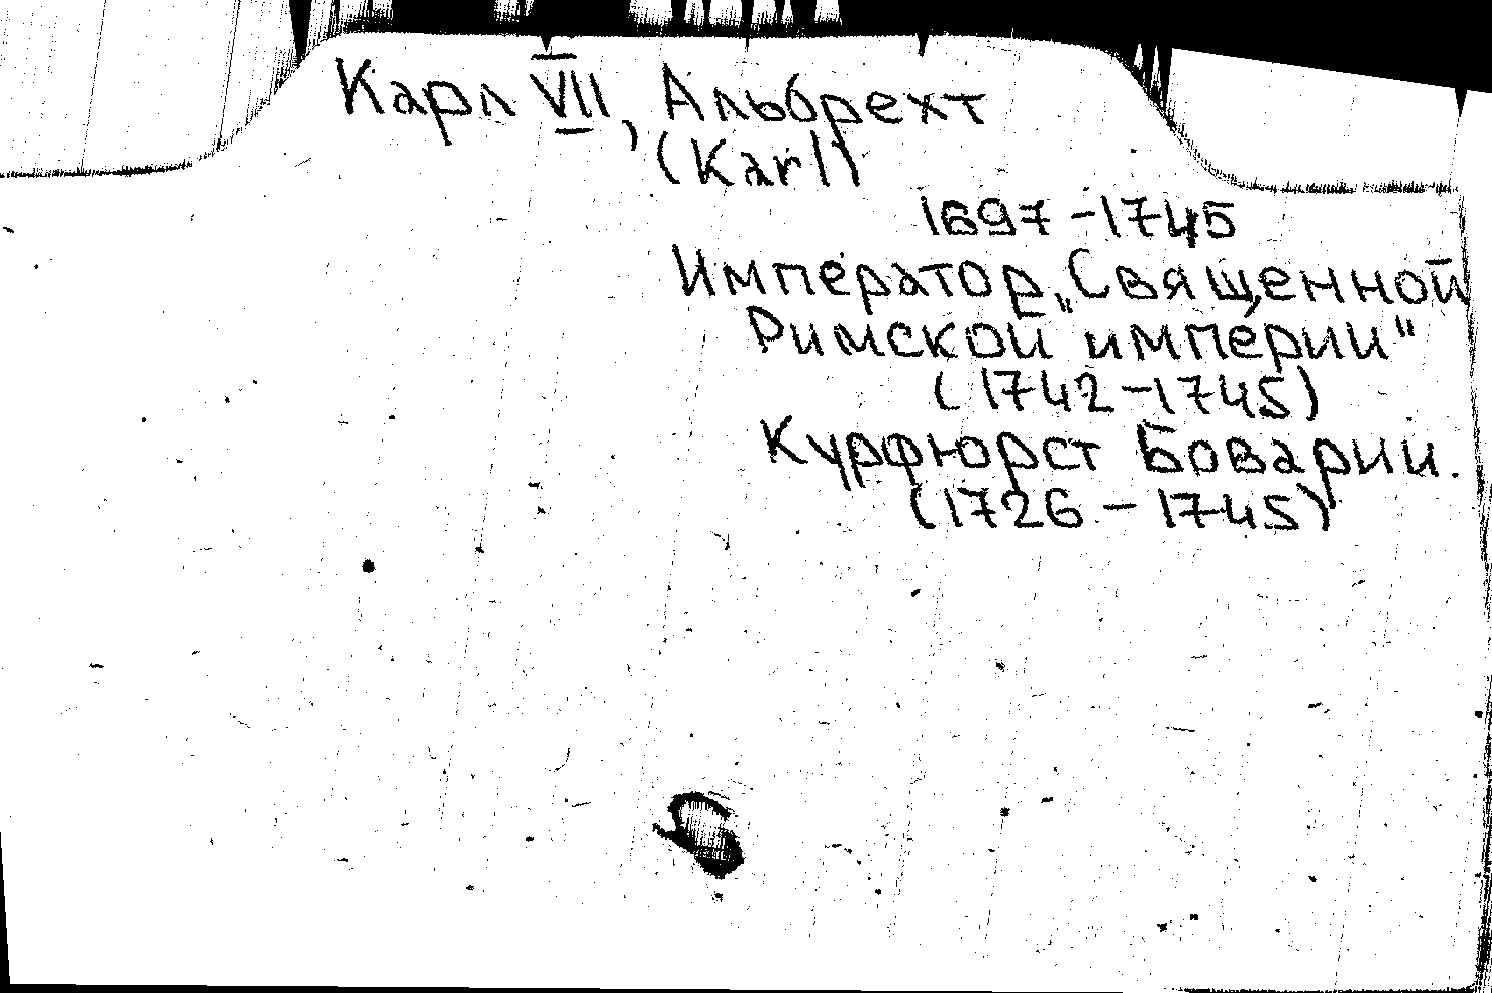 Карл VII, Альбрехт
(Karl)
1697-1745
Император „Священной
Римской империи"
(1742-1745)
Курфюрст Боварии.
(1726-1745)